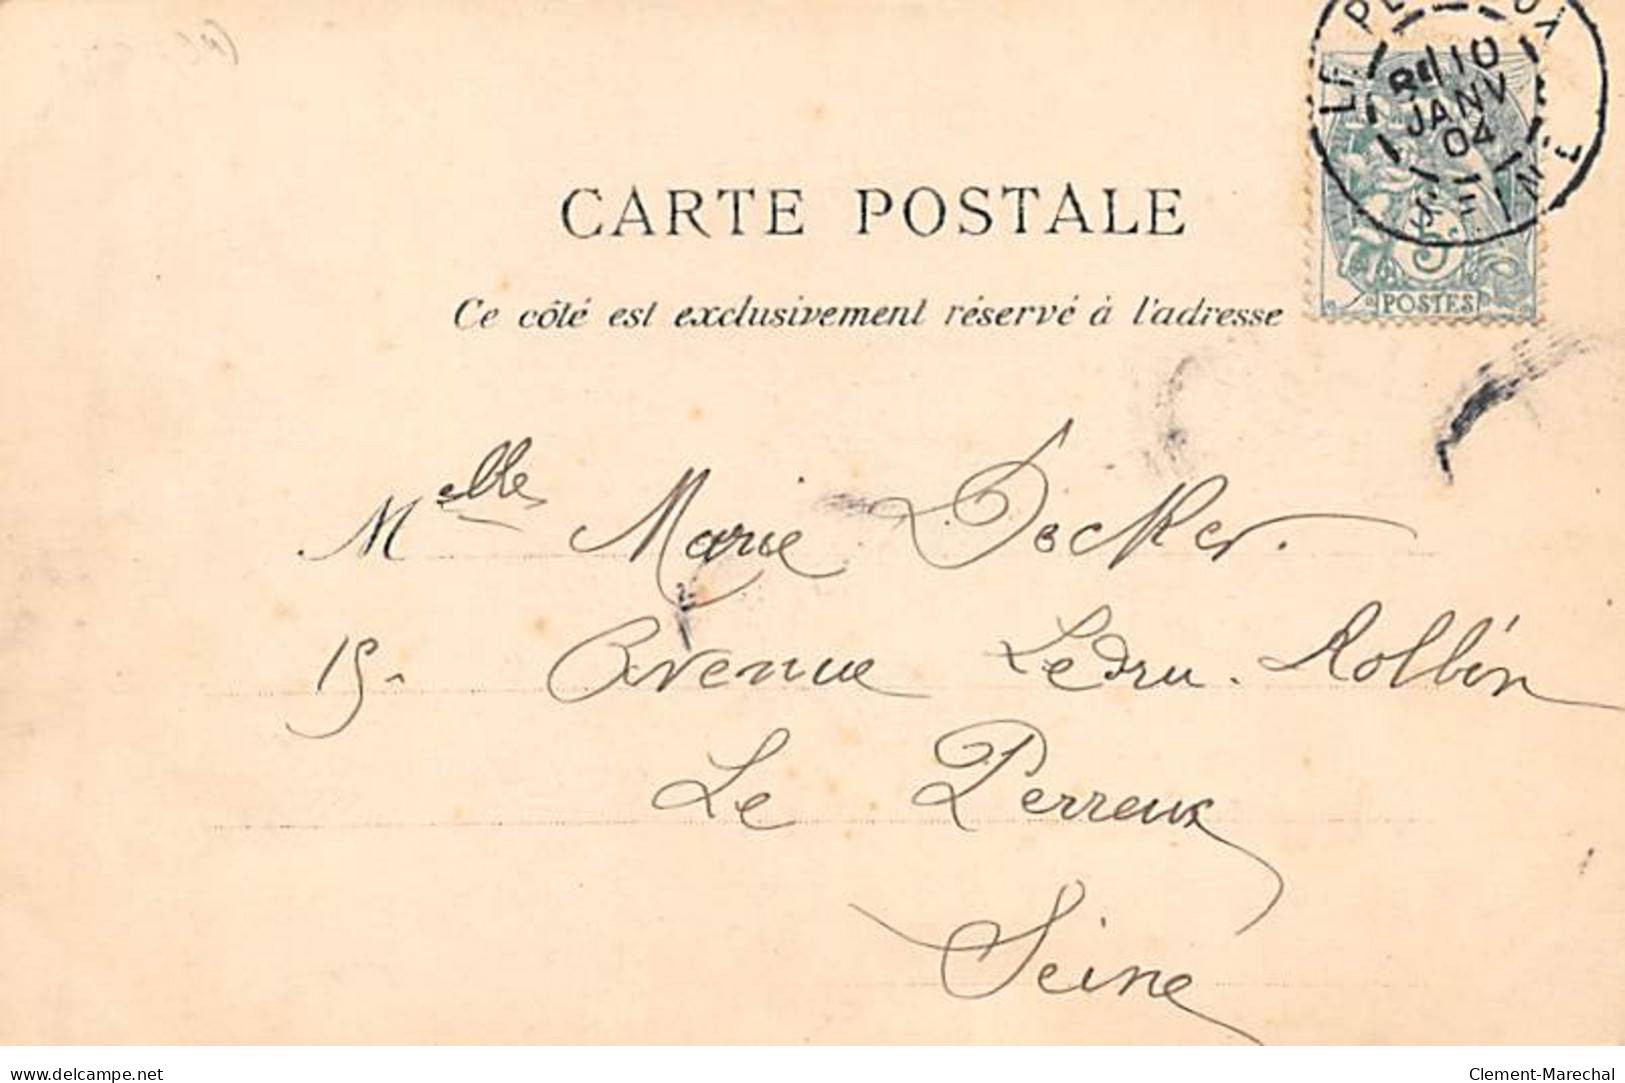 LE PE UX
10
JANV
04
SEINE
5
POSTES
CARTE POSTALE
Ce côté est exclusivement réservé à l'adresse
Melle Marie Decker.
15- Avenue Ledru-Rollin
Le Perreux
Seine
www.delcampe.net
Clement-Marechal